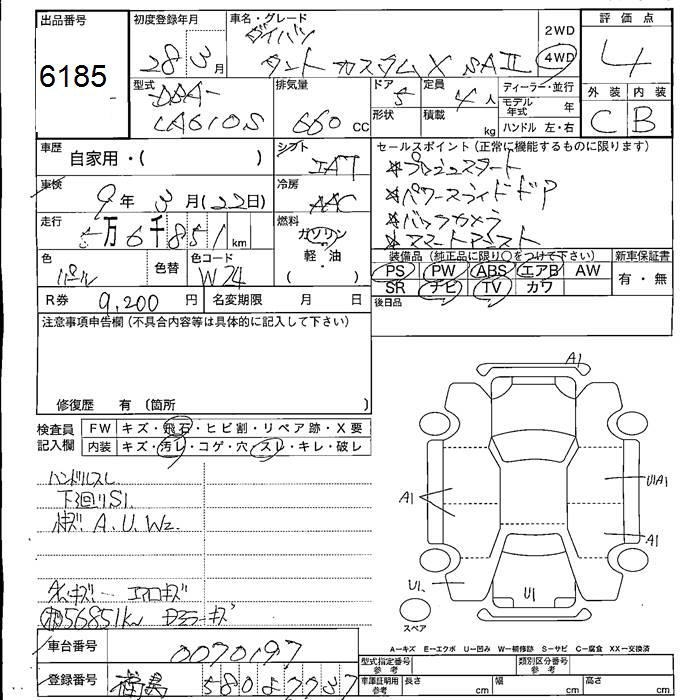 出品番号
6185
初度登録年月
28 3 月
車名・グレード
ダイハツ
タント カスタムX SAⅡ
2WD
4WD
評価点
4
外装 内装
C B
型式
DBA-
LA610S
排気量
660 cc
ドア 5
形状
定員 4 人
積載 kg
ディーラー・並行
モデル年式 年
ハンドル 左・右
車歴
自家用・( )
シフト
IAT
車検
9年 3月(22日)
冷房
AAC
走行
5万6千851 km
燃料
ガソリン
軽・油
( )
色
パール
色替
色コード
W24
R券 9,200 円
名変期限 月 日
セールスポイント(正常に機能するものに限ります)
※プッシュスタート
※パワースライドドア
※バックカメラ
※スマートアシスト
装備品(純正品に限り○をつけて下さい)
PS PW ABS エアB AW
SR ナビ TV カワ
新車保証書
有・無
後日品
注意事項申告欄(不具合内容等は具体的に記入して下さい)
修復歴 有 (箇所 )
検査員記入欄
FW キズ・飛石・ヒビ割・リペア跡・X要
内装 キズ・汚レ・コゲ・穴・スレ・キレ・破レ
ハンドルスレ
下回りS1.
A. U. W2.
エアロキズ
56851km ドアミラーキズ
A1
A1
U1A1
A1
U1.
U1
スペア
A=キズ E=エクボ U=凹み W=補修跡 S=サビ C=腐食 XX=交換済
車台番号 0070197
登録番号 580
型式指定番号 参考
類別区分番号 参考
車庫証明用 参考
長さ cm
幅 cm
高さ cm